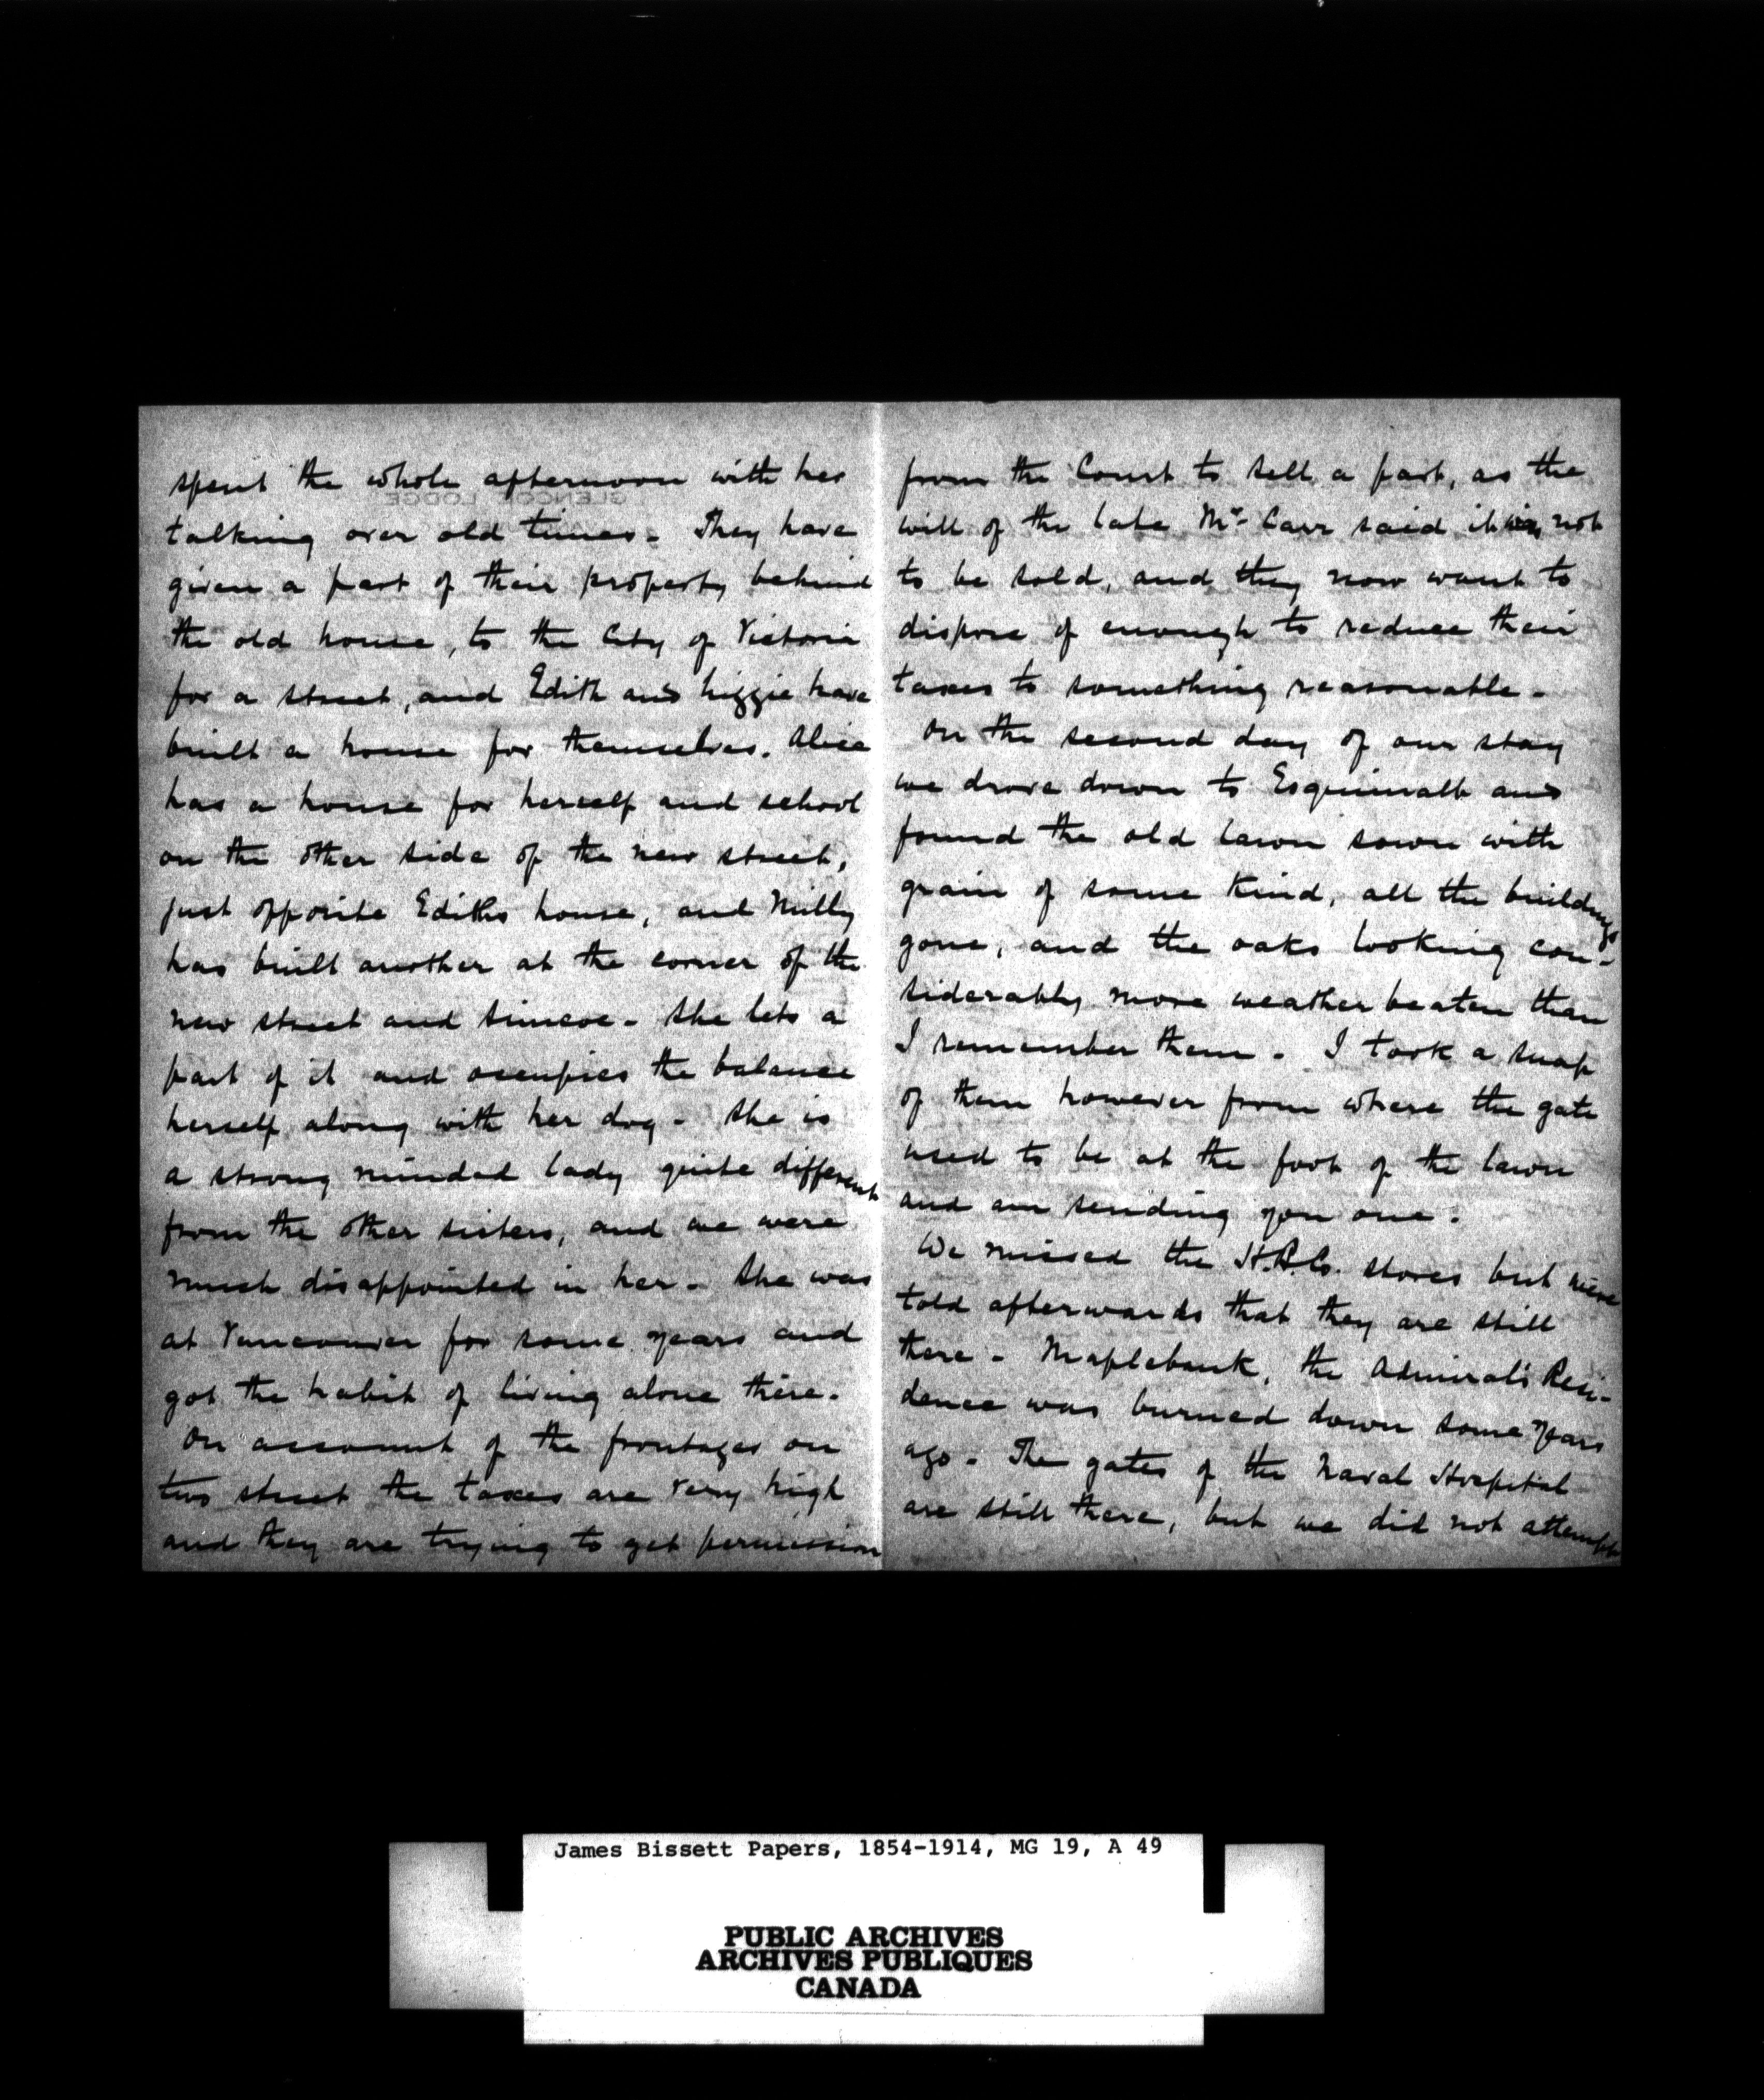 spent the whole afternoon with her
GLENCOE LODGE
talking over old times. They have
given a part of their property behind
the old house, to the City of Victoria
for a street, and Edith and Lizzie have
built a house for themselves. Alice
has a house for herself and school
on the other side of the new street,
just opposite Ediths house, and Milly
has built another at the corner of the
new street and Simcoe - She lets a
part of it and occupies the balance
herself along with her dog - She is
a strong minded lady quite different
from the other sisters, and we were
much disappointed in her - She was
at Vancouver for some years and
got the habit of living alone there.
On account of the frontages on
two street the taxes are very high
and they are trying to get permission
from the Court to sell a part, as the
will of the late Mr. Carr said it was not
to be sold, and they now want to
dispose of enough to reduce their
taxes to something reasonable -
On the second day of our stay
we drove down to Esquimalt and
found the old lawn sown with
grain of some kind, all the buildings
gone, and the oaks looking con-
siderably more weather beaten than
I remember them - I took a snap
of them however from where the gate
used to be at the foot of the lawn
and am sending you one.
We missed the H.B.Co. stores but were
told afterwards that they are still
there - Maplebank, the Admiral's Resi-
dence was burned down some years
ago - The gates of the Naval Hospital
are still there, but we did not attempt
James Bissett Papers, 1854-1914, MG 19, A 49
PUBLIC ARCHIVES
ARCHIVES PUBLIQUES
CANADA